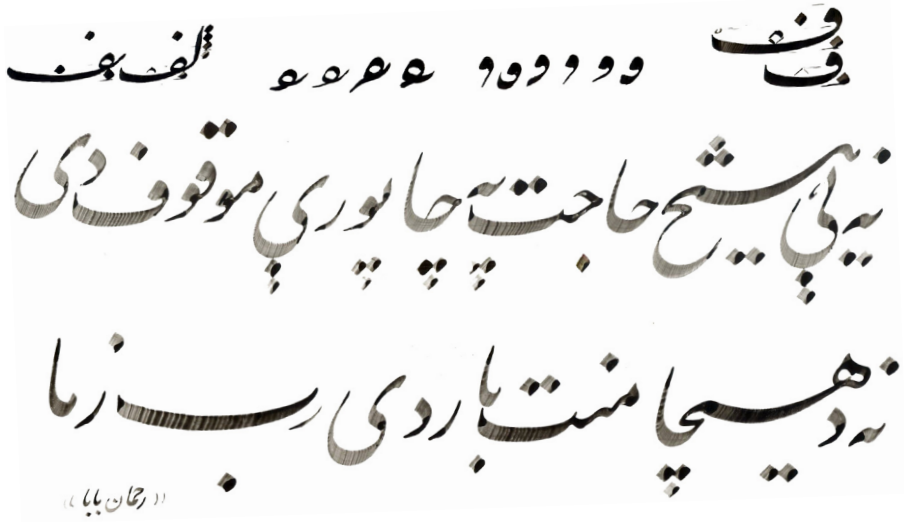 ف ف و و و و و و و
نه ئې هیڅ حاجت په چا پورې موقوف دی
نه د هیچا منت بار دی رب زما
((رحمان بابا))